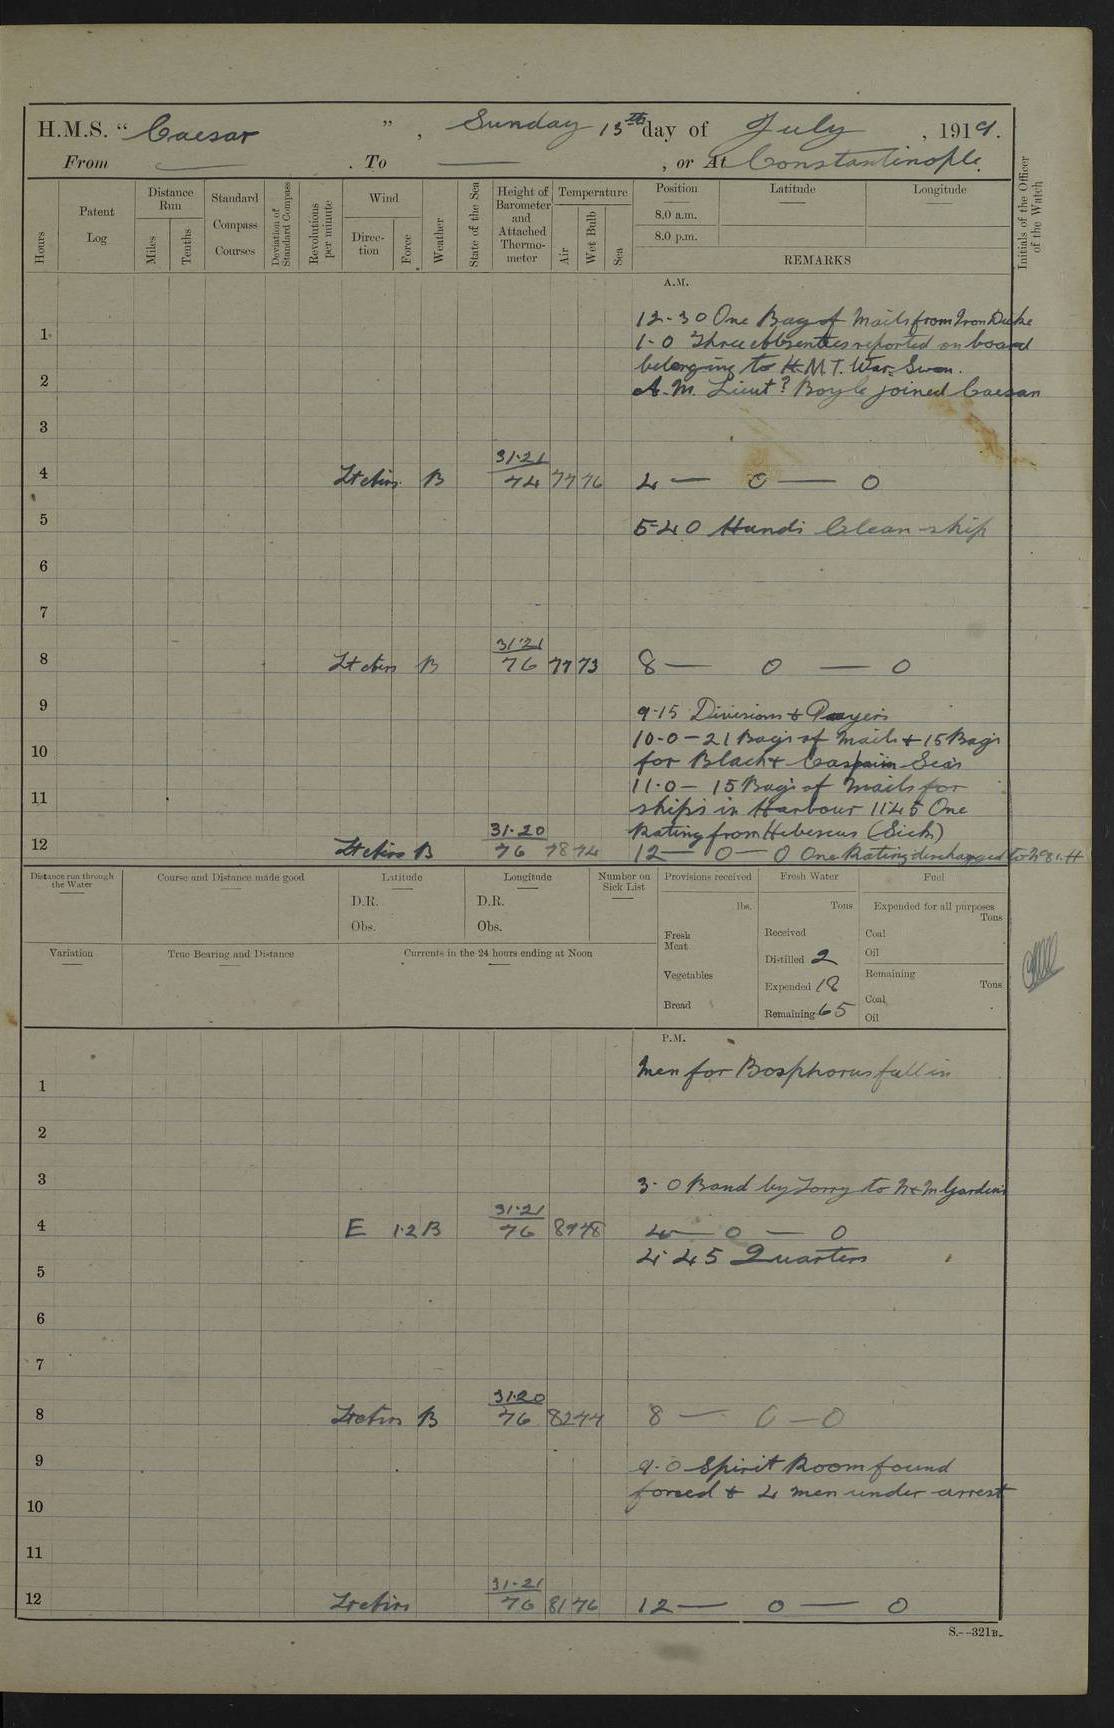 H.M.S. "Caesar", Sunday 13th day of July, 1919.
From — . To — , or At Constantinople.
Hours
Patent Log
Distance Run
Miles
Tenths
Standard Compass Courses
Deviation of Standard Compass
Revolutions per minute
Wind
Direction
Force
Weather
State of the Sea
Height of Barometer and Attached Thermometer
Temperature
Air
Wet Bulb
Sea
Position
Latitude
Longitude
8.0 a.m.
8.0 p.m.
REMARKS
Initials of the Officer of the Watch
A.M.
12-30 One Bag of Mails from Iron Duke
1
1-0 Three absentees reported on board
belonging to H.M.T. War Swan.
2
A.M. Lieut? Boyle joined Caesar
3
31.21
4 Lt airs B 74 77 76 4 — 0 — 0
5
5-40 Hands Clean ship
6
7
31.21
8 Lt airs B 76 77 73 8 — 0 — 0
9
9.15 Divisions & Prayers
10-0 - 21 Bags of Mails & 15 Bags
10
for Black & Caspian Seas
11.0 - 15 Bags of Mails for
11
ships in Harbour 11.45 One
31.20
Rating from Hibiscus (Sick)
12 Lt airs B 76 78 74 12 — 0 — 0 One Rating discharged to
Distance run through the Water
Course and Distance made good
Latitude
D.R.
Obs.
Longitude
D.R.
Obs.
Number on Sick List
Provisions received
lbs.
Fresh Meat
Vegetables
Bread
Fresh Water
Tons
Received
Distilled 2
Expended 18
Remaining 65
Fuel
Expended for all purposes
Tons
Coal
Oil
Remaining
Tons
Coal
Oil
Variation
True Bearing and Distance
Currents in the 24 hours ending at Noon
P.M.
Men for Bosphorus fall in
1
2
3
3.0 Band by Lorry to Gardens
31.21
4 E 1.2 B 76 89 78 4 — 0 — 0
4.45 Quarters
5
6
7
31.20
8 Lt airs B 76 82 77 8 — 0 — 0
9
9.0 Spirit Room found
forced & 4 men under arrest
10
11
31.21
12 Lt airs 76 81 76 12 — 0 — 0
S.--321B.